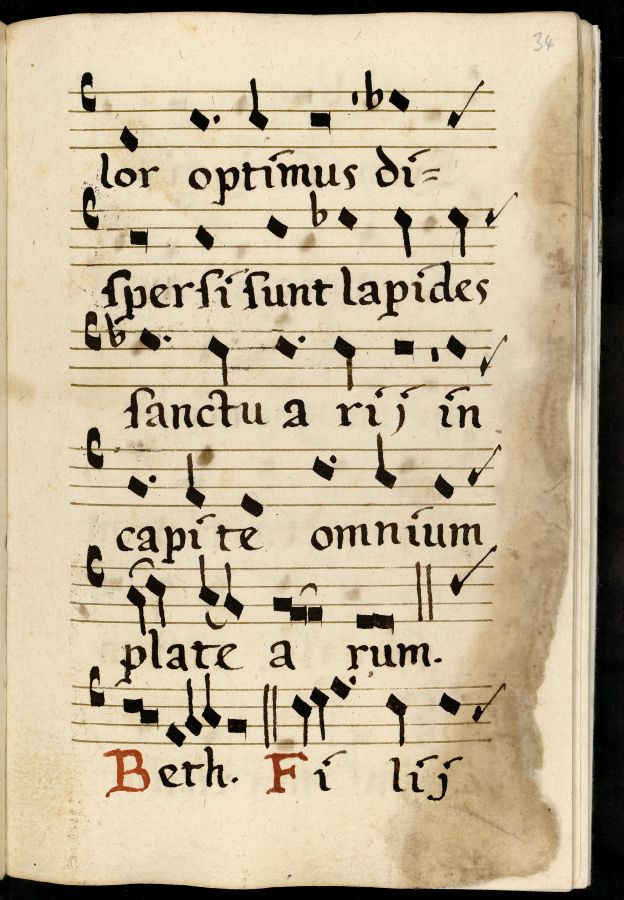 34
lor optimus di=
spersi sunt lapides
sanctu a rij in
capi te omnium
plate a rum.
Beth. Fi lij